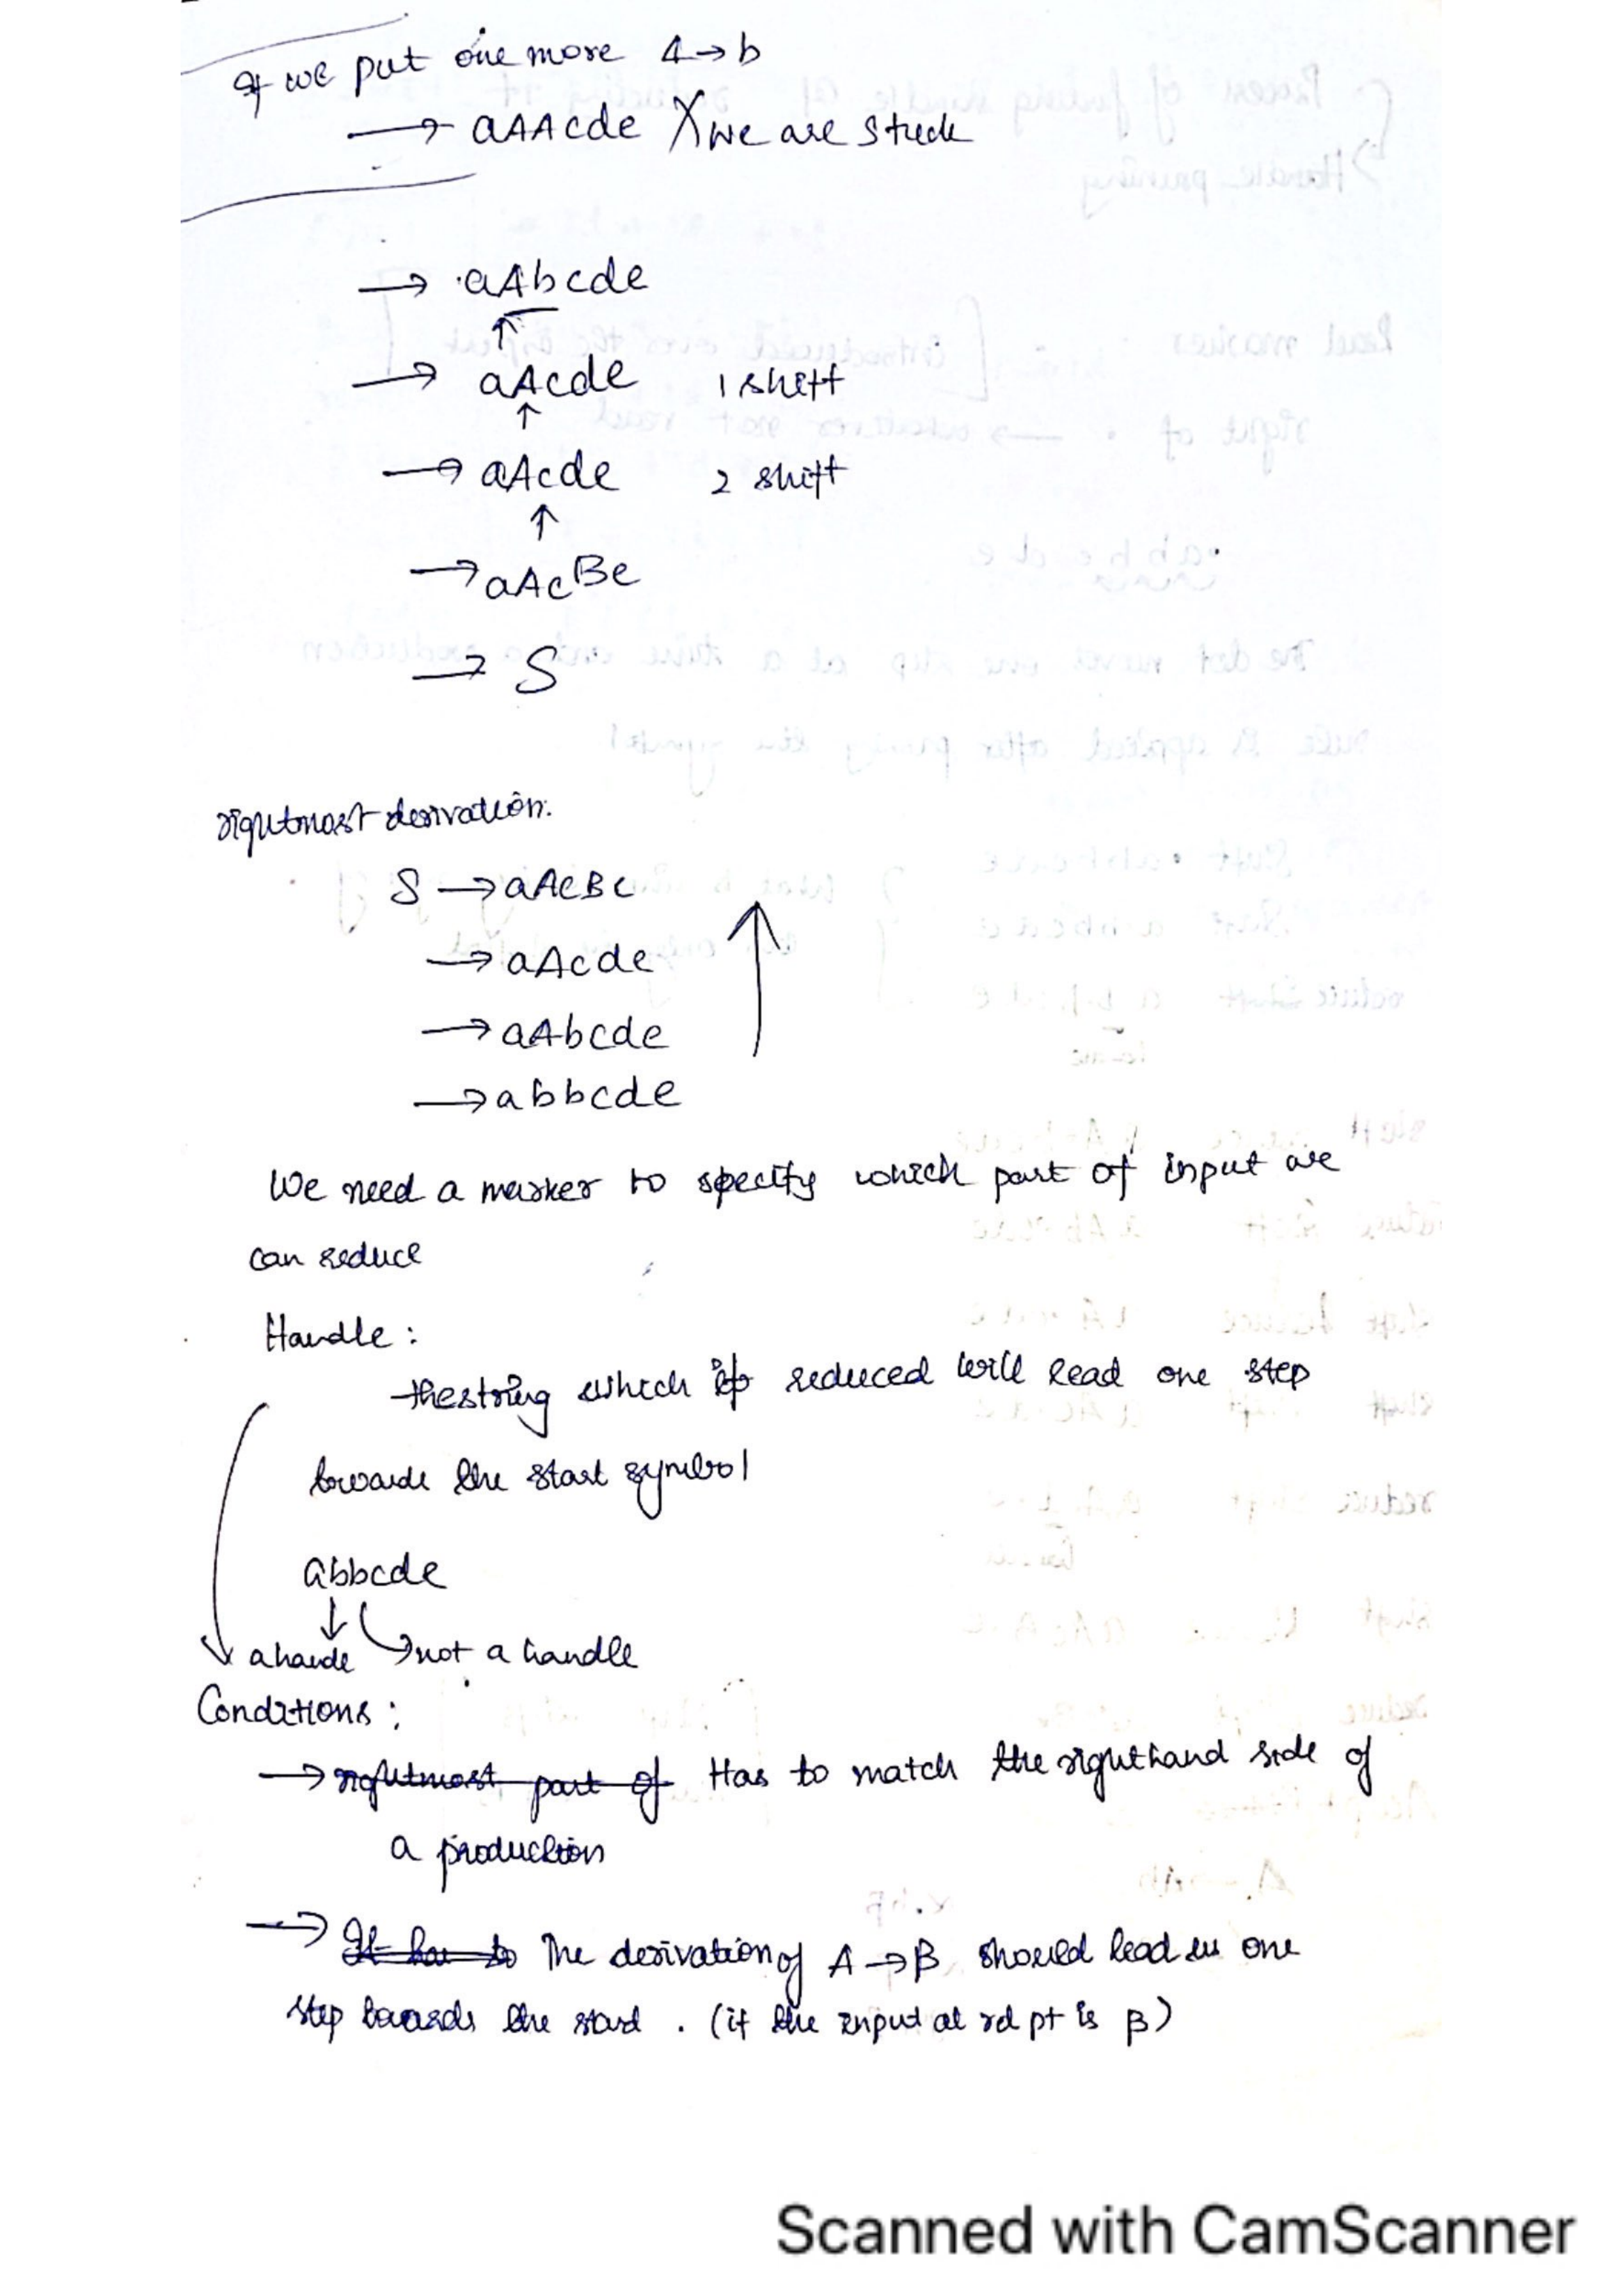 If we put one more A→b
→ aAAcde X we are stuck
→ .aAbcde
↑
→ aAcde 1 shift
↑
→ aAcde 2 shift
↑
→ aAcBe
→ S
rightmost derivation.
S → aAcBe
→ aAcde
→ aAbcde
→ abbcde
We need a marker to specify which part of input are
can reduce
Handle:
the string which if reduced will lead one step
towards the start symbol
abbcde
a handle not a handle
Conditions:
→ rightmost part of Has to match the righthand side of
a production
→ It has to The derivation of A→β should lead in one
step towards the start . (if the input at rd pt is β)
Scanned with CamScanner